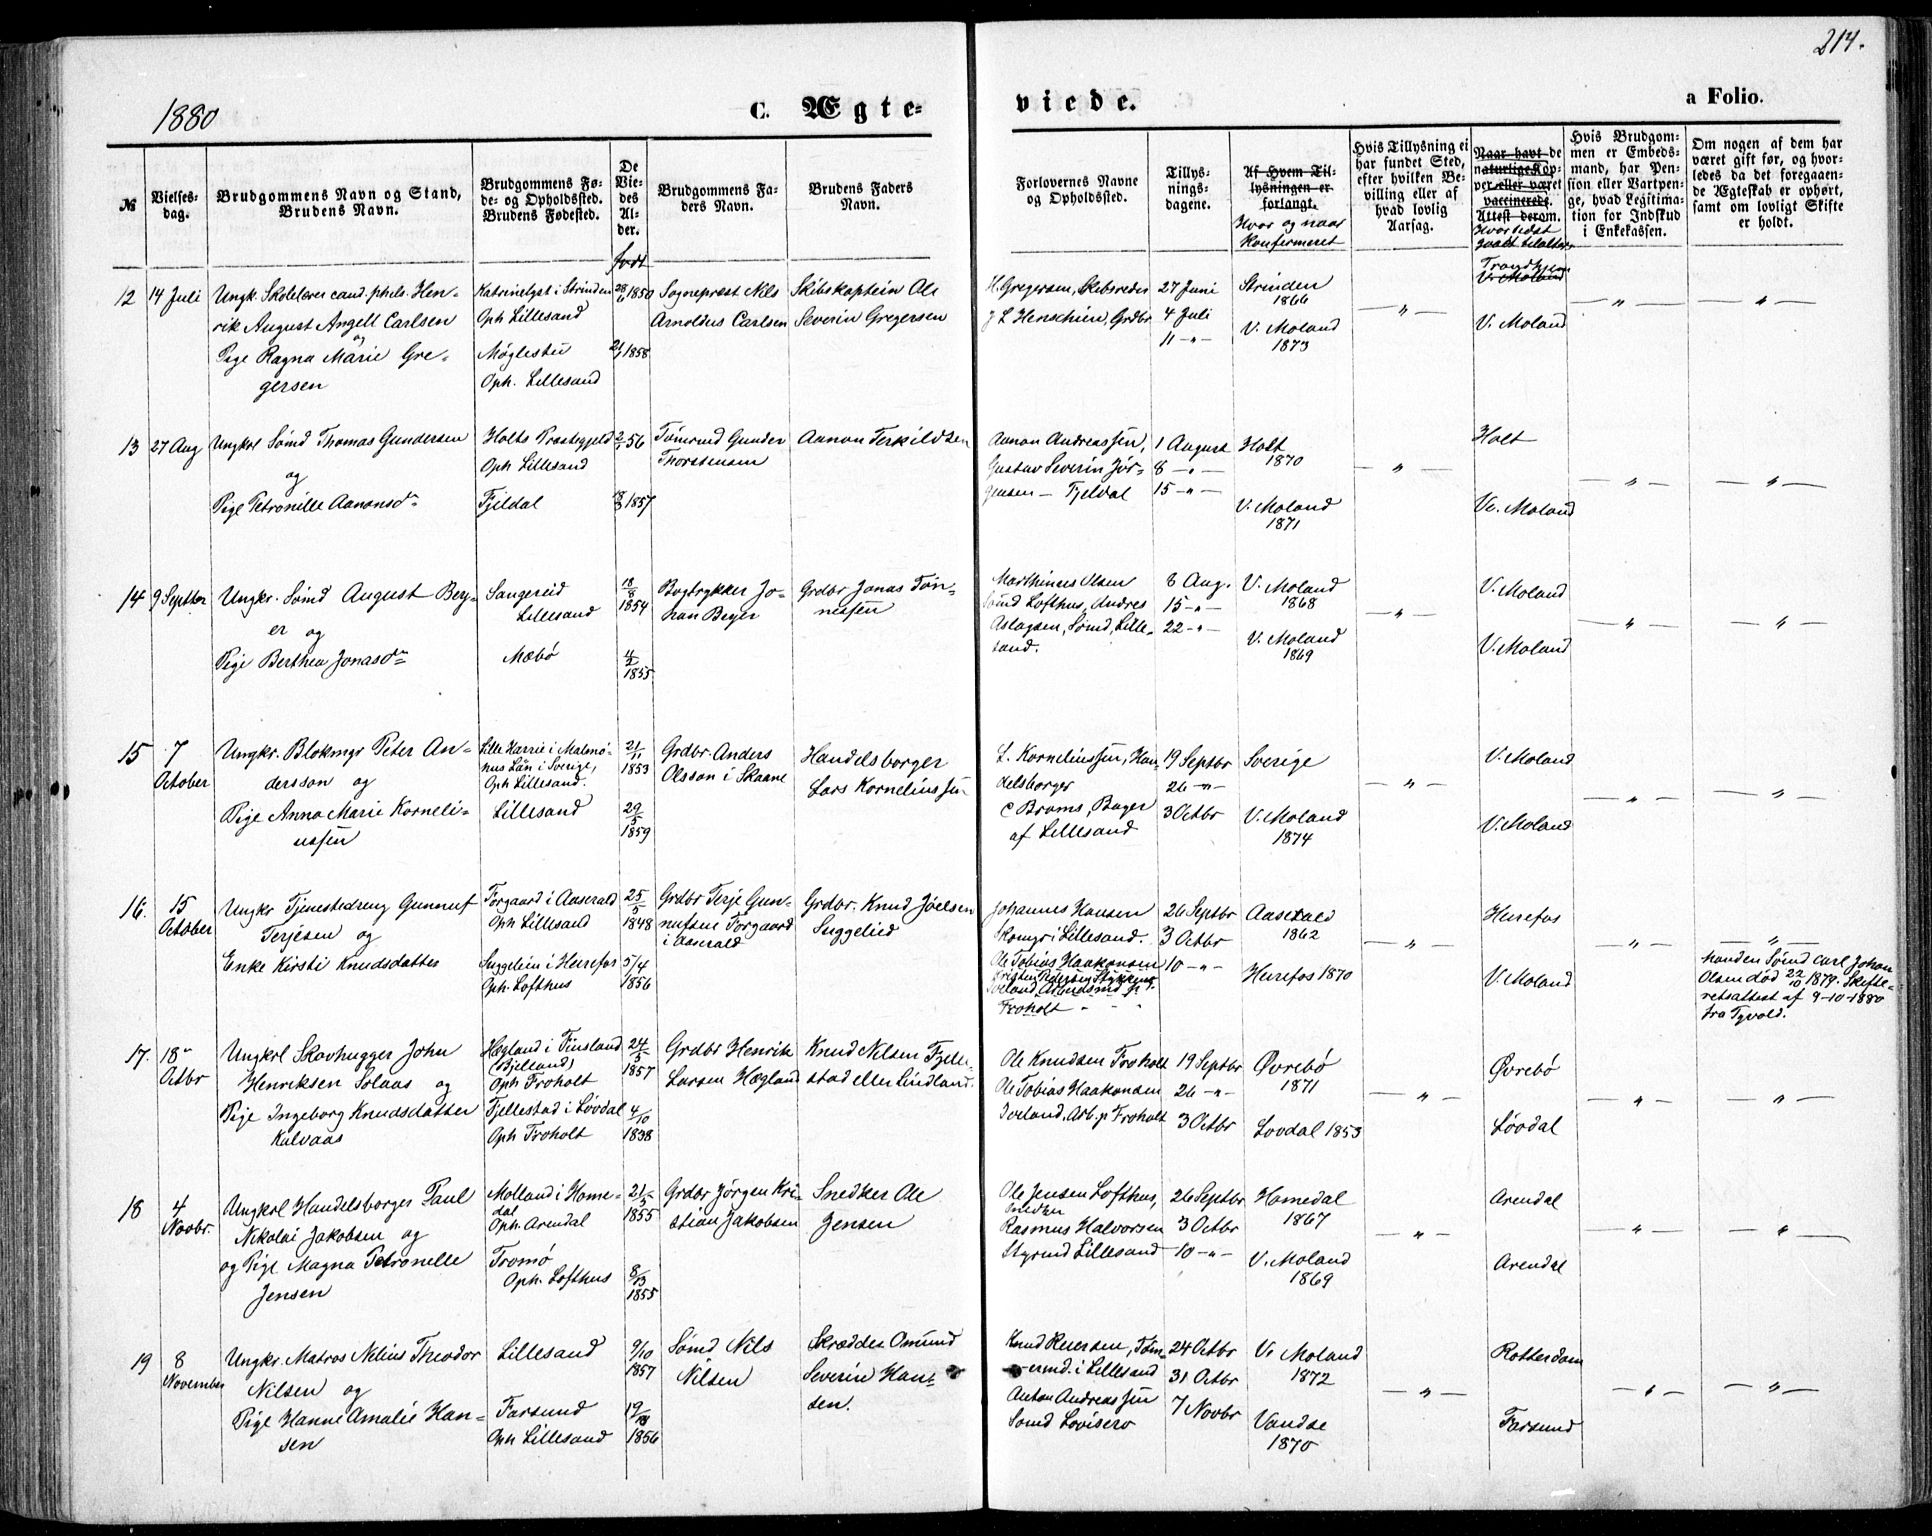 214.
1880
C. Ægte-
viede.
a Folio.
№
Vielses-
dag.
Brudgommens Navn og Stand,
Brudens Navn.
Brudgommens Fø-
de- og Opholdssted.
Brudens Fødested.
De
Vie-
des
Al-
der.
født
Brudgommens Fa-
ders Navn.
Brudens Faders
Navn.
Forlovernes Navne
og Opholdssted.
Tillys-
nings-
dagene.
Af Hvem Til-
lysningen er
forlangt.
Hvor og naar
Konfermeret
Hvis Tillysning ei
har fundet Sted,
efter hvilken Be-
villing eller af
hvad lovlig
Aarsag.
Naar havt de
naturlige Kop-
per eller været
vaccinerede.
Attest derom.
Hvor sidst
gaaet tilalters
Hvis Brudgom-
men er Embeds-
mand, har Pen-
sion eller Vartpen-
ge, hvad Legitima-
tion for Indskud
i Enkekassen.
Om nogen af dem har
været gift før, og hvor-
ledes da det foregaaen-
de Ægteskab er ophørt,
samt om lovligt Skifte
er holdt.
12
14 Juli
Ungk. Skolelærer cand. phil. Hen-
rik August Angell Carlsen
og
Pige Ragna Marie Gre-
gersen
Katrinelyst i Strinden
Oph Lillesand
Møglestu
Oph. Lillesand
1850
1858
Sogneprest Nils
Arnoldus Carlsen
Skibskaptein Ole
Severin Gregersen
H. Gregersen, Skibsreder
J L Henschien, Grdbr
27 Juni
4 Juli
11 -"-
Strinden
1866
V. Moland
1873
"
Trondhjem
V. Moland
V. Moland
"
"
13
27 Aug
Ungkrl Sømd Thomas Gundersen
og
Pige Petronille Aanonsd
Holts Præstegjeld
Oph Lillesand
Fjeldal
56
1857
Tømrmd Gunder
Thorstensen
Aanon Terkildsen
Aanon Andreassen,
Gustav Severin Jør-
gensen - Fjeldal
1 August
8 -"-
15 -"-
Holt
1870
V. Moland
1871
"
Holt
V. Moland
"
"
14
9 Septber
Ungkr. Sømd August Bey-
er og
Pige Berthea Jonasd
Sangereid
Lillesand
Mæbø
18/8
1854
4/2
1855
Bogtrykker Jo-
han Beyer
Grdbr Jonas Tøn-
nessen
Marthinus Olsen
Sømd Lofthus, Andres
Aslagsen, Sømd, Lille-
sand.
8 Aug.
15 -"-
22 -"-
V. Moland
1868
V. Moland
1869
"
V. Moland
V. Moland
"
"
15
7
October
Ungkr. Blokmgr Peter An-
dersson og
Pige Anna Marie Korneli-
ussen
Lille Harrie i Malmø-
hus Län i Sverige,
Oph Lillesand.
Lillesand
21/11
1853
29/5
1859
Grdbr. Anders
Olsson i Skaane
Handelsborger
Lars Korneliussen
L. Korneliussen, Han-
delsborger
C Broms, Bager
af Lillesand
19 Septbr
26 -"-
3 Octbr
Sverige
V. Moland
1874
"
V. Moland
V. Moland
"
"
16.
15
October
Ungkr Tjenestedreng Gunnuf
Terjesen og
Enke Kirsti Knudsdatter
Forgaard i Aaserald
Oph Lillesand
Suggelien i Herefos
Oph. Lofthus
25/5
1848
5/4
1856
Grdbr Terje Gun-
nufsen Forgaard
i Aaserald
Grdbr. Knud Jøelsen
Suggelied
Johannes Hansen
Skomgr i Lillesand.
Ole Tobias Haakonsen
Iveland, Arbeidsmd p.
Froholt
26 Septbr
3 Octbr
10 -"-
Aaserald
1862
Herefos 1870
"
Herefos
V. Moland
"
"
Manden Sømd Carl Johan
Olsen død 22/10 1879. Skifte-
retsattest af 9-10-1880
fra Tyvold.
17.
18
Octbr
Ungkrl Skovhugger John
Henriksen Solaas og
Pige Ingeborg Knudsdatter
Kulvaas
Hægland i Finsland
(Bjelland)
Oph Froholt
Fjellestad i Løvdal
Oph Froholt
24/5
1857
4/10
1838
Grdbr Henrik
Larsen Hægland
Knud Nilsen Fjelle-
stad eller Lindland.
Ole Knudsen Froholt
Ole Tobias Haakonsen
Iveland, Arb. p Froholt
19 Septbr
26 -"-
3 Octbr
Øvrebø
1871
Lovdal 1853
"
Øvrebø
Løvdal
"
"
18
4
Novbr.
Ungkrl Handelsborger Paul
Nikolai Jakobsen og
og Pige Magna Petronelle
Jensen
Molland i Home-
dal
Oph. Arendal
Tromø
Oph. Lofthus
21/5
1855
1855
Grdbr Jørgen Kri-
stian Jakobsen
Snedker Ole
Jensen
Ole Jensen Lofthus,
Snedker
Rasmus Halvorsen
Styrmd Lillesand
26 Septbr
3 Octbr
10 -"-
Homedal
1867
V. Moland
1869
"
Arendal
Arendal
"
"
19
8
November
Ungkr. Matros Nilius Theodor
Nilsen og
Pige Hanne Amalie Han-
sen
Lillesand
Farsund
Oph Lillesand
9/10
1857
1856
Sømd Nils
Nilsen
Skrædder Omund
Severin Han-
sen.
Knud Reiersen, Tøm-
ermd. i Lillesand
Anton Andreassen
Sømd Lovisero
24 Octbr
31 Octbr
7 Novbr
V. Moland
1872
Vandse
1870
"
Rotterdam
Farsund
"
"